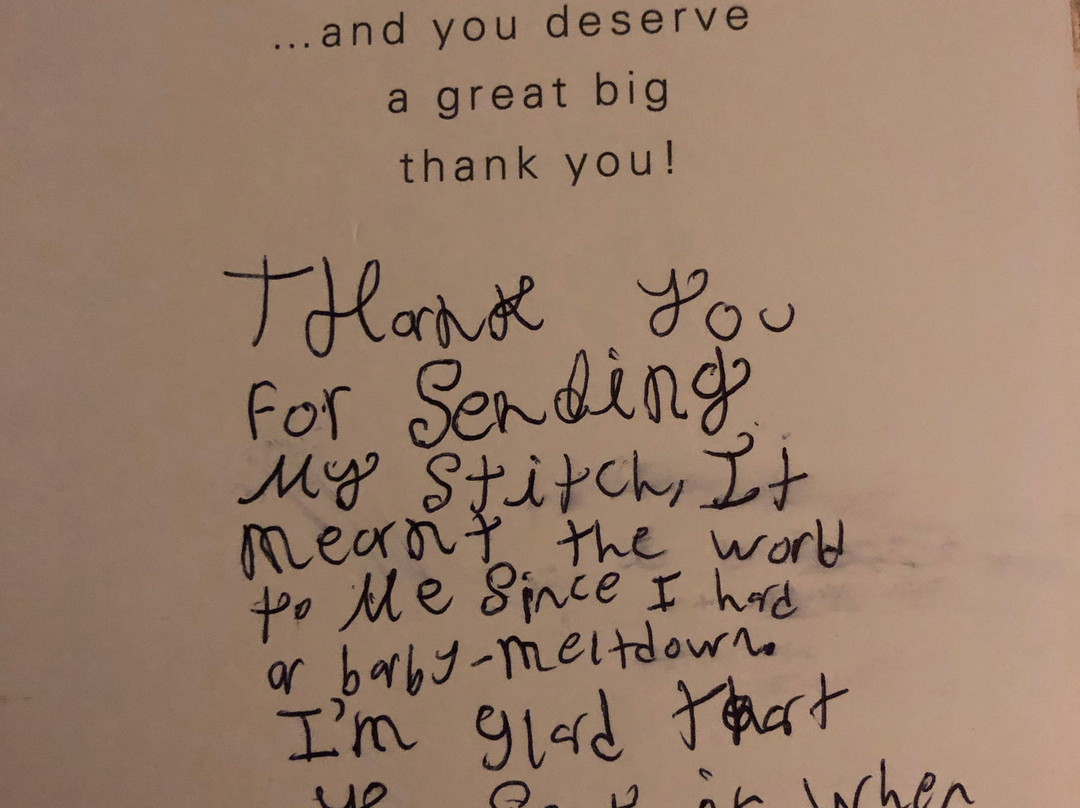 ...and you deserve
a great big
thank you!
THank You
For Sending
My Stitch, It
meant the world
to Me Since I had
a baby-meltdown.
I'm glad that
when